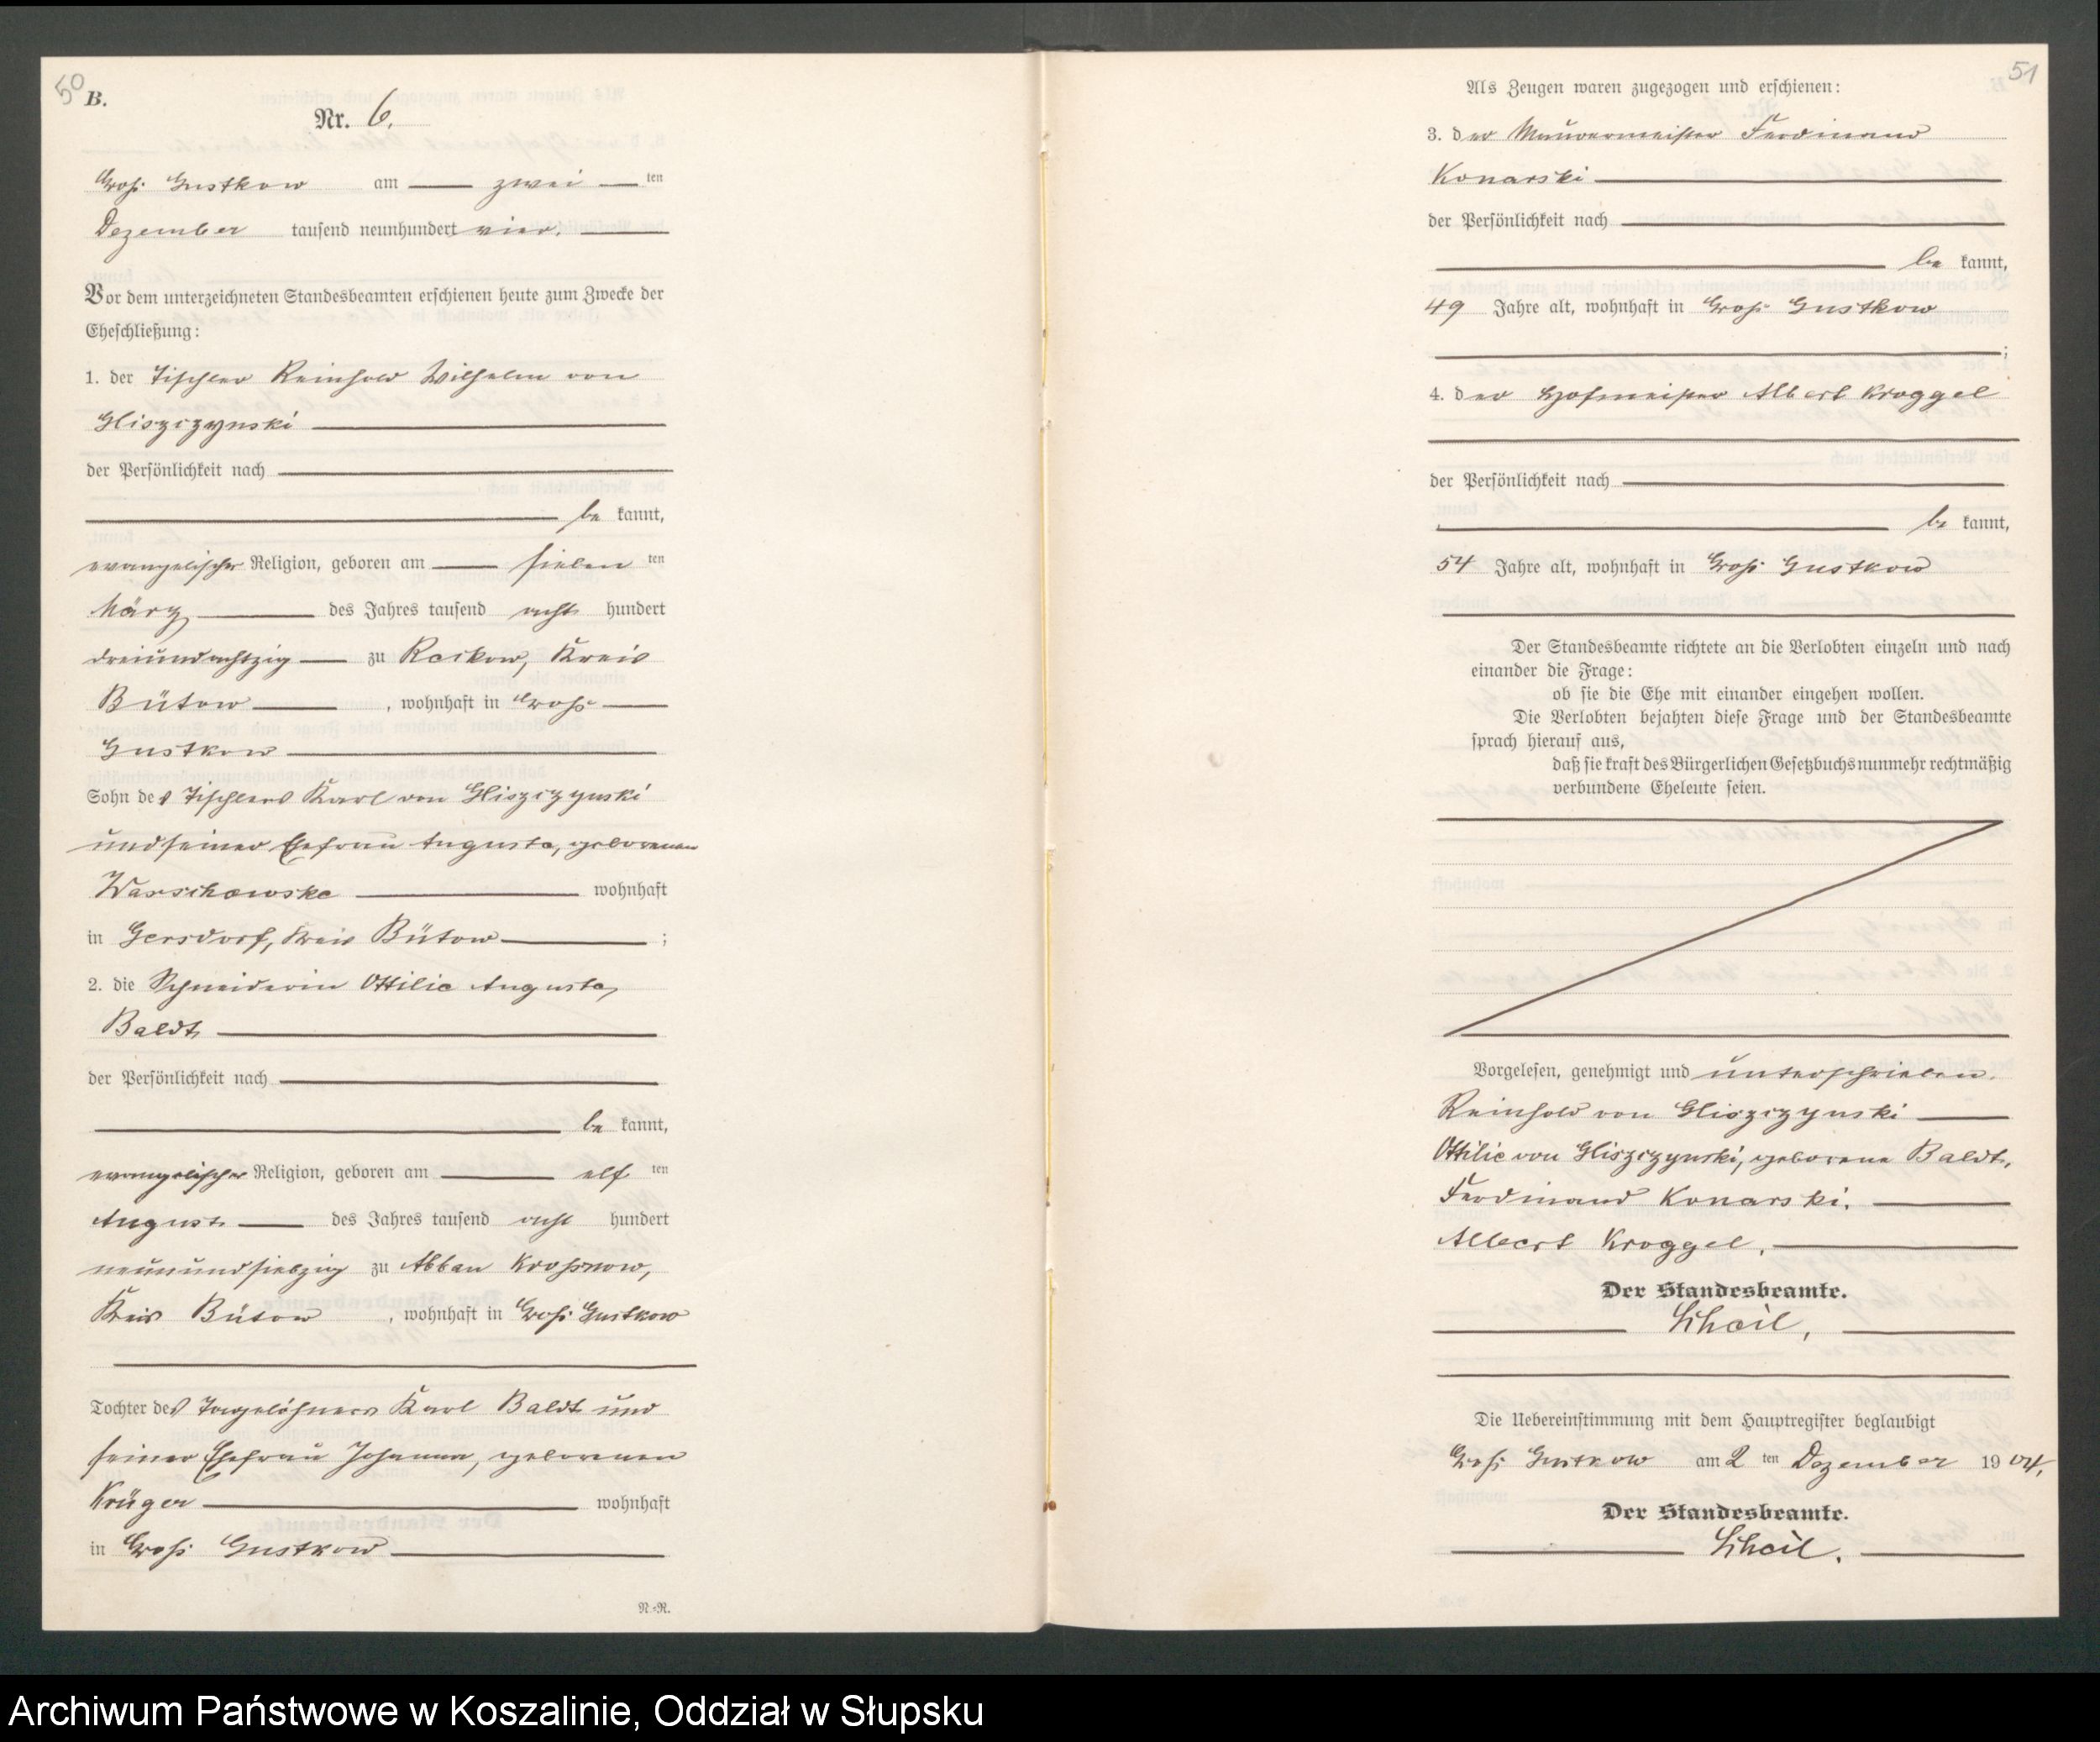 50
B.
Nr. 6.
Groß Gustkow am zwei ten
Dezember tausend neunhundert vier.
Vor dem unterzeichneten Standesbeamten erschienen heute zum Zwecke der
Eheschließung:
1. der Tischler Reinhold Wilhelm von
Gliszczynski
der Persönlichkeit nach
be kannt,
evangelischer Religion, geboren am sieben ten
März des Jahres tausend acht hundert
dreiundachtzig zu Reckow, Kreis
Bütow, wohnhaft in Groß
Gustkow
Sohn des Tischlers Karl von Gliszczynski
und seiner Ehefrau Auguste, geborenen
wohnhaft
in Gersdorf, Kreis Bütow;
2. die Schneiderin Ottilie Auguste
Baldt
der Persönlichkeit nach
be kannt,
evangelischer Religion, geboren am elf ten
August des Jahres tausend acht hundert
neunundsiebzig zu Abbau Kroßnow,
Kreis Bütow, wohnhaft in Groß Gustkow
Tochter des Tagelöhners Karl Baldt und
seiner Ehefrau Johanna, geborenen
Krüger wohnhaft
in Groß Gustkow
N.=R.
51
Als Zeugen waren zugezogen und erschienen:
3. der Maurermeister Ferdinand
Konarski
der Persönlichkeit nach
be kannt,
49 Jahre alt, wohnhaft in Groß Gustkow
;
4. der Hofmeister Albert Kroggel
der Persönlichkeit nach
be kannt,
54 Jahre alt, wohnhaft in Groß Gustkow
Der Standesbeamte richtete an die Verlobten einzeln und nach
einander die Frage:
ob sie die Ehe mit einander eingehen wollen.
Die Verlobten bejahten diese Frage und der Standesbeamte
sprach hierauf aus,
daß sie kraft des Bürgerlichen Gesetzbuchs nunmehr rechtmäßig
verbundene Eheleute seien.
Vorgelesen, genehmigt und unterschrieben.
Reinhold von Gliszczynski
Ottilie von Gliszczynski, geborene Baldt,
Ferdinand Konarski.
Albert Kroggel.
Der Standesbeamte.
Die Uebereinstimmung mit dem Hauptregister beglaubigt
Groß Gustkow am 2 ten Dezember 19 04.
Der Standesbeamte.
Archiwum Państwowe w Koszalinie, Oddział w Słupsku